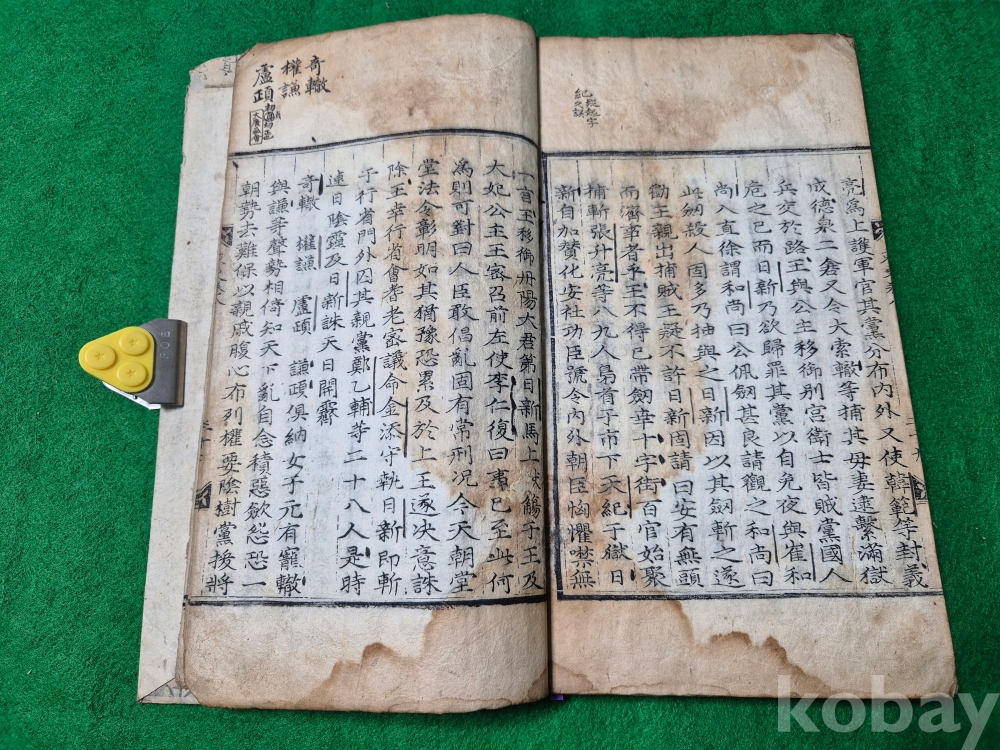 紀疑起字之誤
亮爲上護軍官其黨分布內外又使韓範等封義
成德泉二倉又令大索轍等捕其母妻逮繫滿獄
兵交於路王與公主移御別宮衛士皆賊黨國人
危之已而日新乃欲歸罪其黨以自免夜與崔和
尚入直徐謂和尚曰公佩劒甚良請觀之和尚曰
此劒殺人固多乃抽與之日新因以其劒斬之遂
勸王親出捕賊王疑不許日新固請曰安有無頭
而濟事者乎王不得已帶劒幸十字街百官始聚
捕斬張升亮等八九人梟首于市下天紀于獄日
新自加賛化安社功臣號令內外朝臣恟懼噤無
奇轍
權謙
盧頙
一言王移御丹陽大君第日新馬上觴于王及
大妃公主王密召前左使李仁復曰事已至此何
爲則可對曰人臣敢倡亂固有常刑况今天朝堂
堂法令彰明如其猶豫恐累及於上王遂决意誅
除王幸行省會耆老密議命金添守執日新即斬
于行省門外囚其親黨鄭乙輔等二十八人是時
連日陰霾及日新誅天日開霽
奇轍 權謙 盧頙 謙頙俱納女于元有寵轍
與謙等聲勢相倚知天下亂自念積惡歛怨恐一
朝勢去難保以親戚腹心布列權要陰樹黨援將
kobay